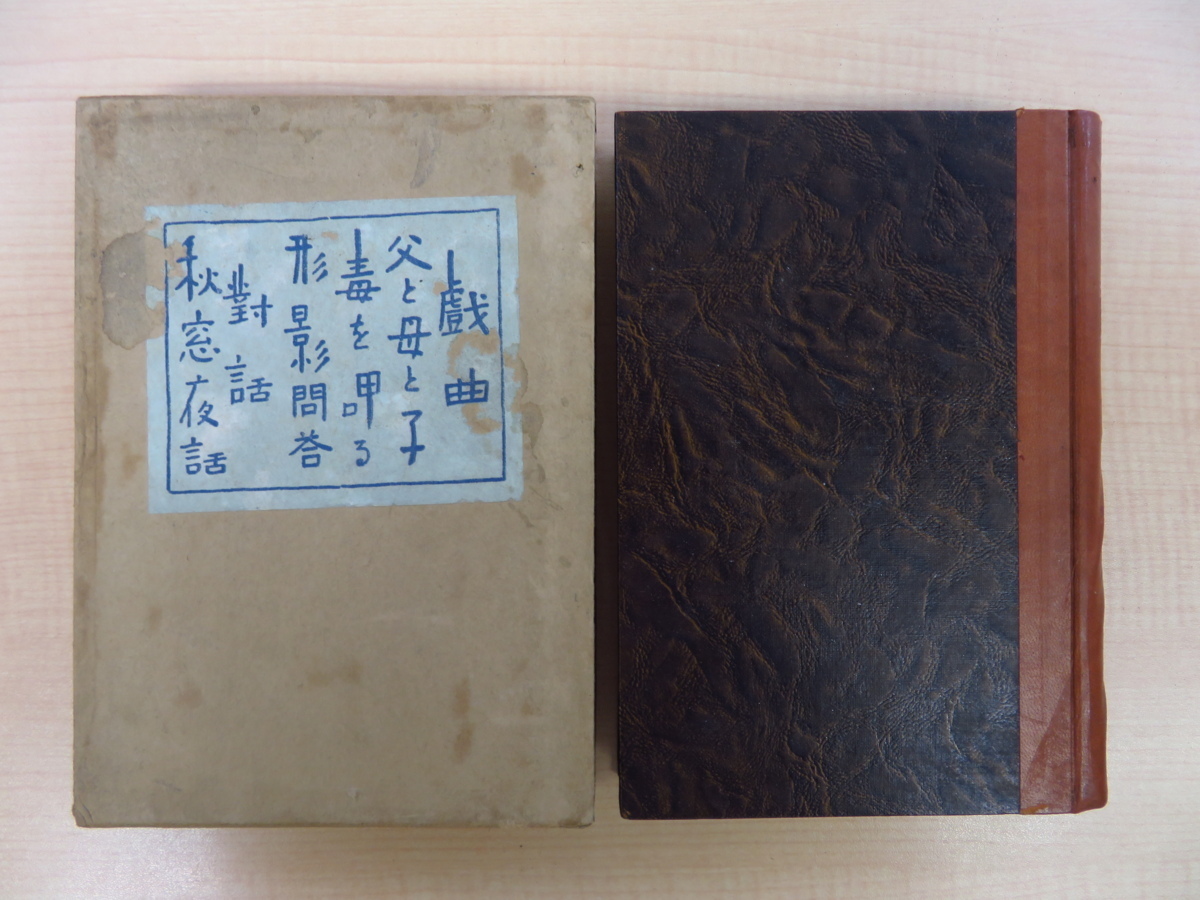 戲曲
父と母と子
毒を呷る
形影問答
對話
秋窓夜話